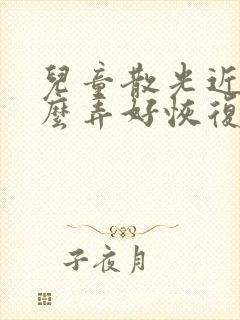 兒童散光近
麼弄好恢復
子夜月